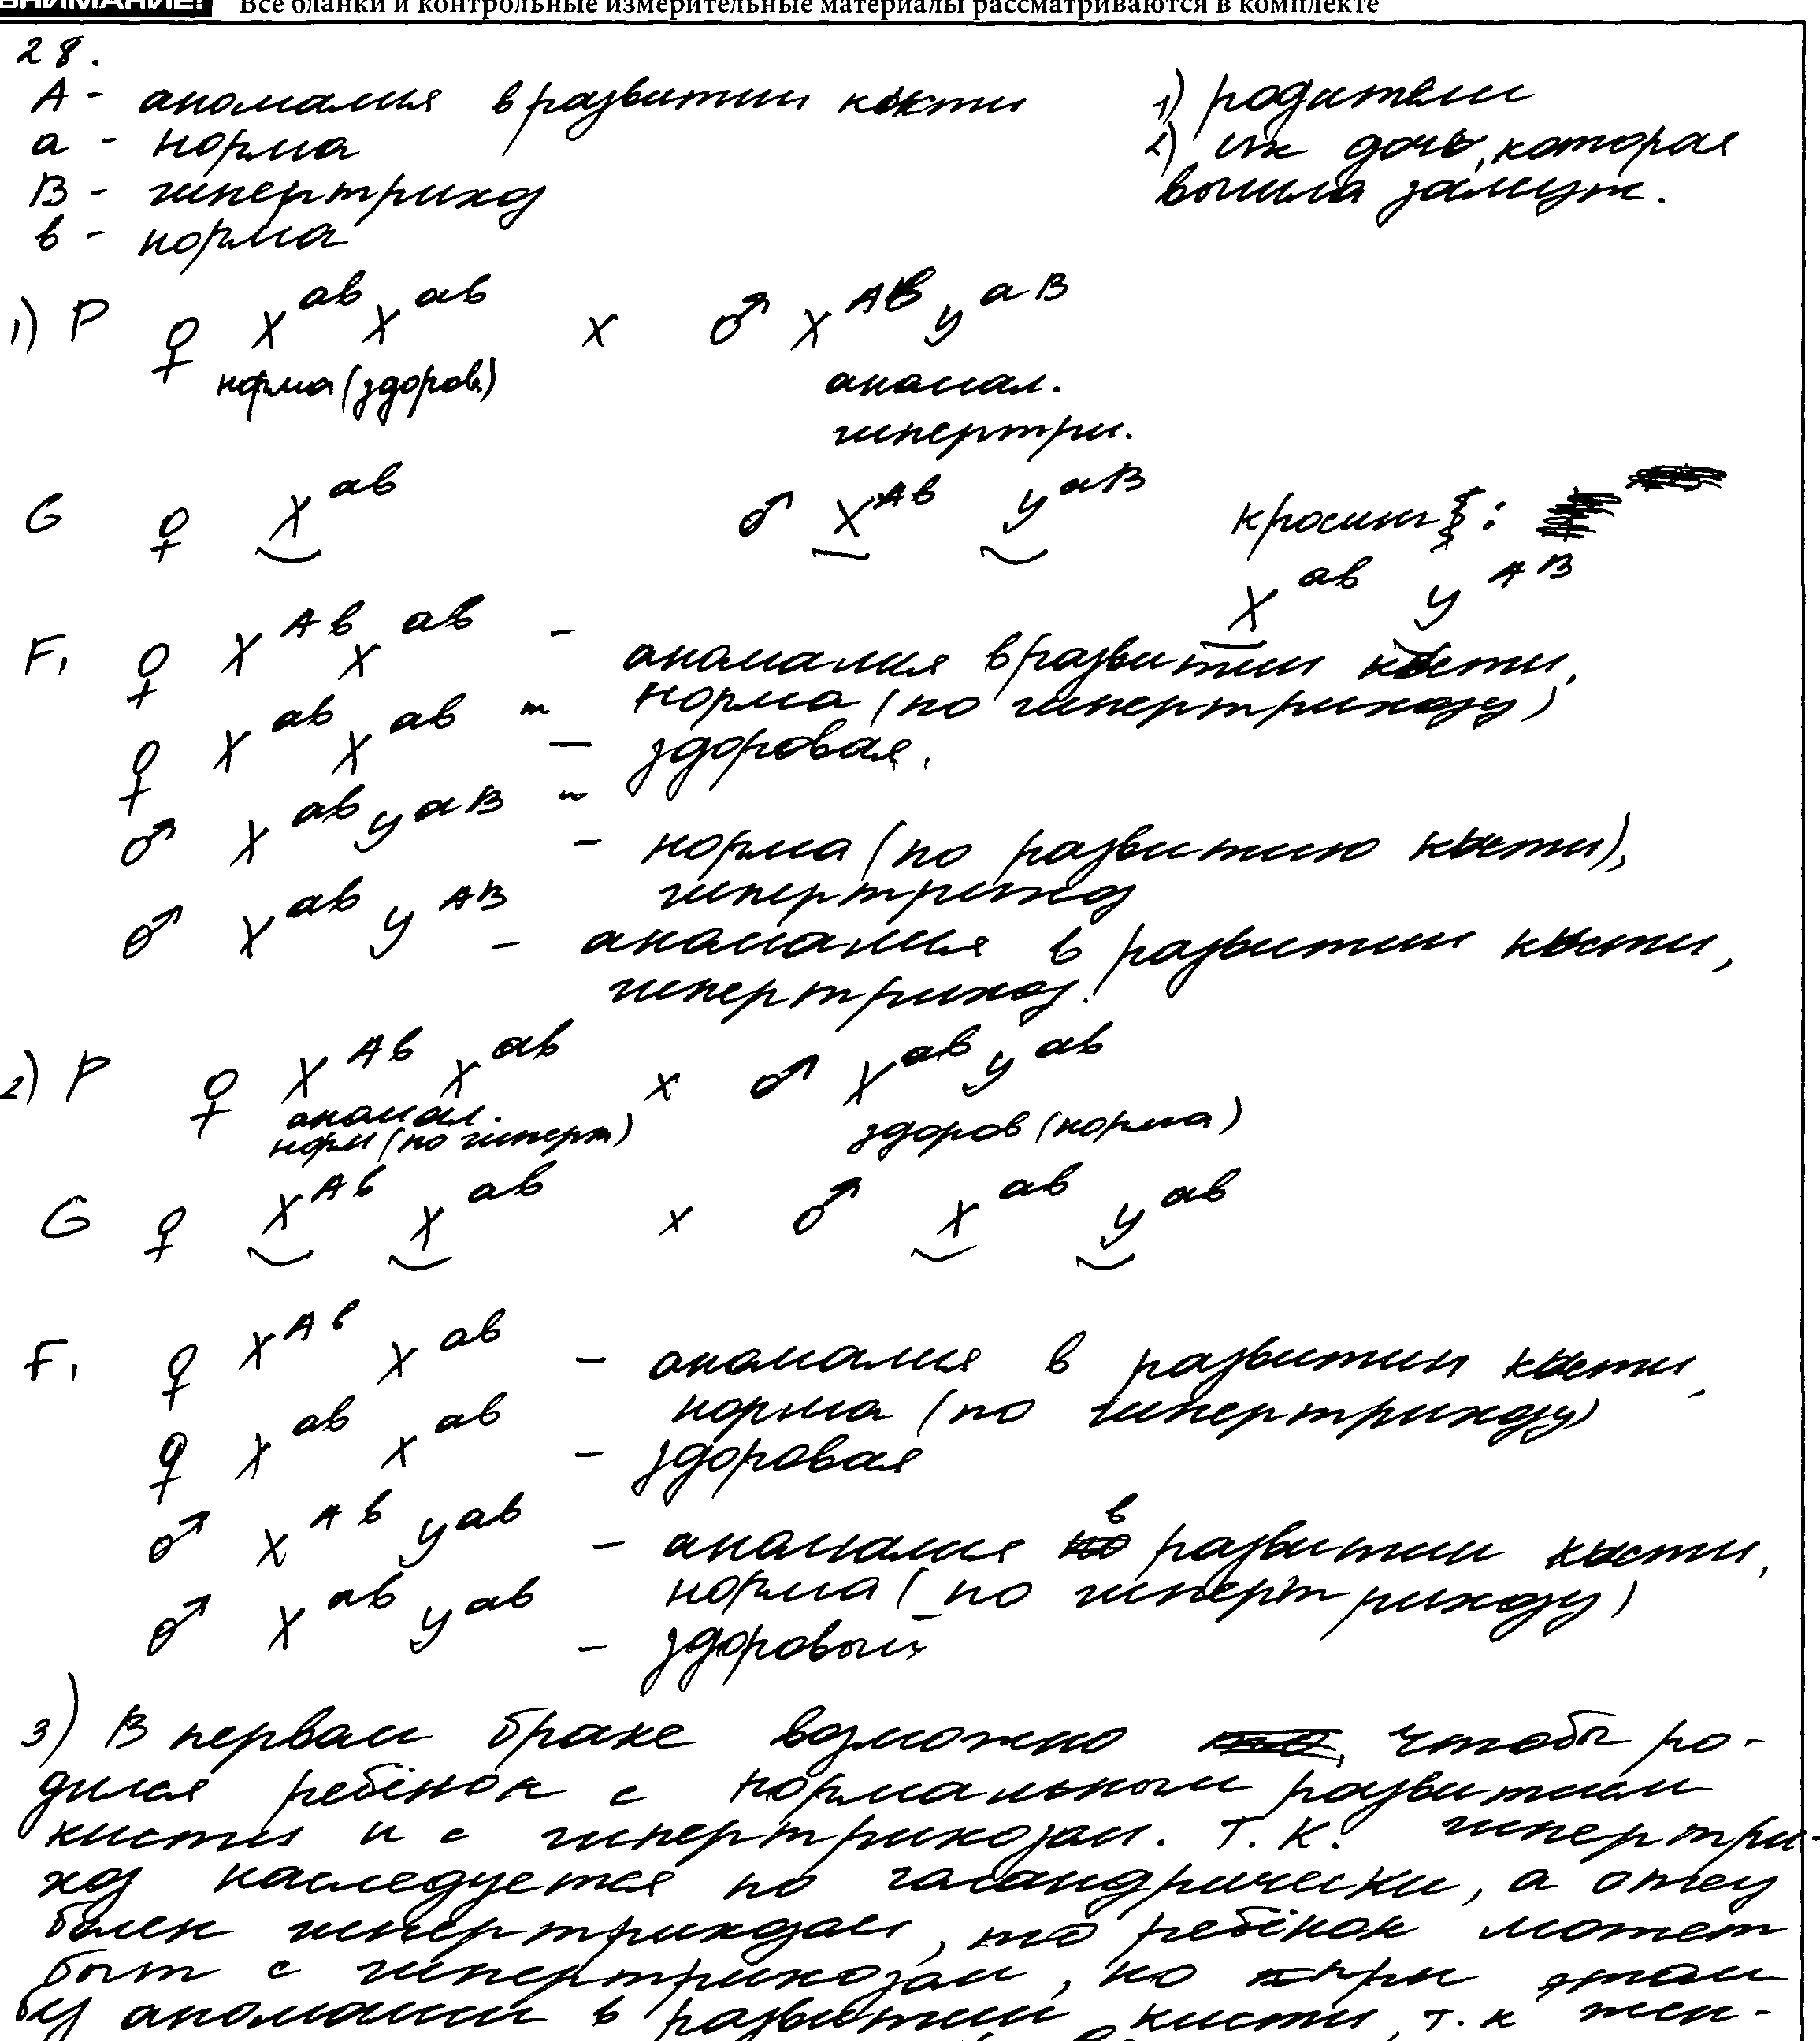 ВНИМАНИЕ! Все бланки и контрольные измерительные материалы рассматриваются в комплекте
28.
А - аномалия в развитии кисти
а - норма
В - гипертрихоз
в - норма
1) родители
2) их дочь, которая
вышла замуж.
1) Р ♀ X^ав X^ав x ♂ X^Ав y^аВ
норма (здоров) аномал.
гипертри.
G ♀ X^ав ♂ X^Ав y^аВ кросинг :
X^ав y^АВ
F1 ♀ X^Ав X^ав - аномалия в развитии кисти,
норма (по гипертрихозу)
♀ X^ав X^ав - здоровая.
♂ X^ав y^аВ - норма (по развитию кисти),
гипертрихоз
♂ X^ав y^АВ - аномалия в развитии кисти,
гипертрихоз.
2) Р ♀ X^Ав X^ав x ♂ X^ав y^ав
аномал. здоров (норма)
норм (по гиперт)
G ♀ X^Ав X^ав x ♂ X^ав y^ав
F1 ♀ X^Ав X^ав - аномалия в развитии кисти,
норма (по гипертрихозу)
♀ X^ав X^ав - здоровая
♂ X^Ав y^ав - аномалия в развитии кисти,
норма (по гипертрихозу)
♂ X^ав y^ав - здоровый
3) В первом браке возможно чтобы ро-
дился ребёнок с нормальным развитием
кисти и с гипертрихозом. Т.К. гипертри-
хоз наследуется по галандрически, а отец
болен гипертрихозом, то ребёнок может
быт с гипертрихозом, но при этом
без аномалии в развитии кисти, т.к жен-